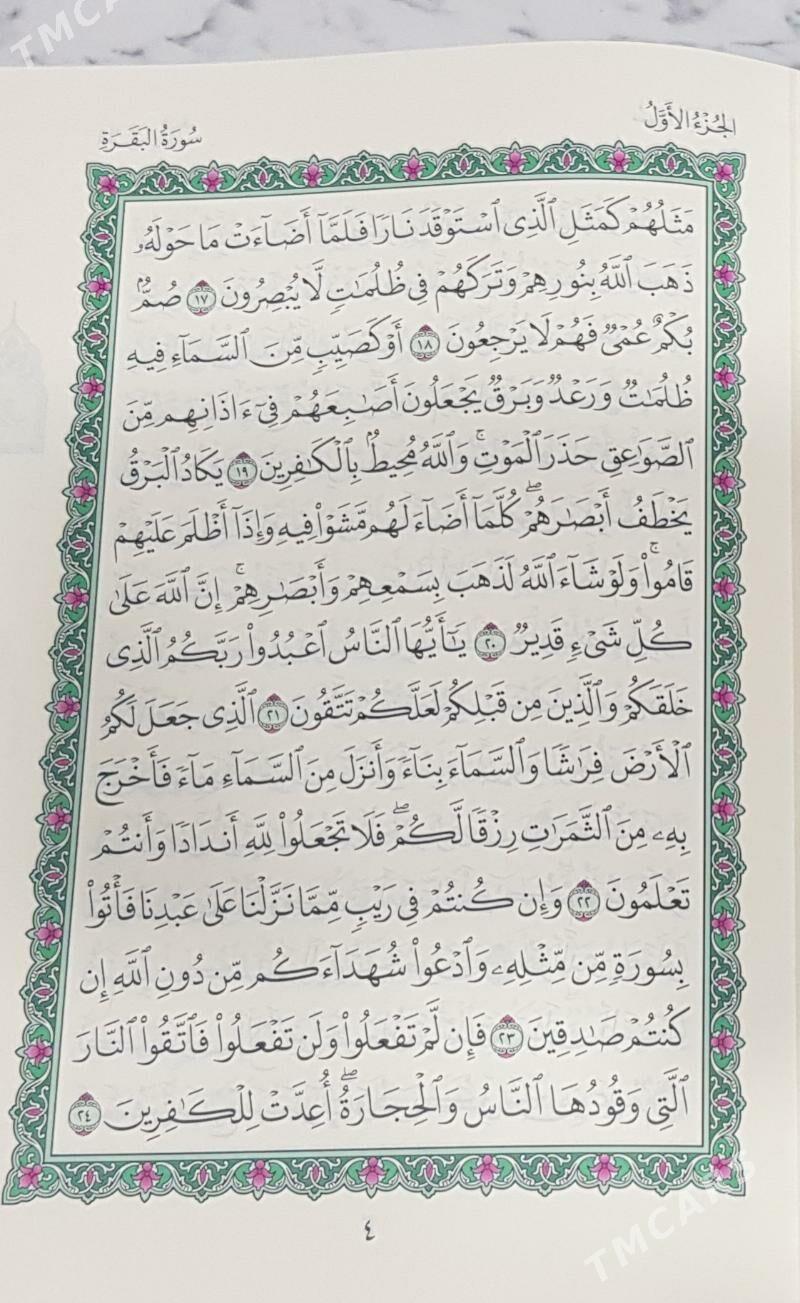 TMCARS
الجُزْءُ الأَوَّلُ
سُورَةُ البَقَرَةِ
مَثَلُهُمْ كَمَثَلِ ٱلَّذِى ٱسْتَوْقَدَ نَارًا فَلَمَّآ أَضَآءَتْ مَا حَوْلَهُۥ
ذَهَبَ ٱللَّهُ بِنُورِهِمْ وَتَرَكَهُمْ فِى ظُلُمَٰتٍ لَّا يُبْصِرُونَ ١٧ صُمٌّۢ
بُكْمٌ عُمْىٌ فَهُمْ لَا يَرْجِعُونَ ١٨ أَوْ كَصَيِّبٍ مِّنَ ٱلسَّمَآءِ فِيهِ
ظُلُمَٰتٌ وَرَعْدٌ وَبَرْقٌ يَجْعَلُونَ أَصَٰبِعَهُمْ فِىٓ ءَاذَانِهِم مِّنَ
ٱلصَّوَٰعِقِ حَذَرَ ٱلْمَوْتِ ۚ وَٱللَّهُ مُحِيطٌۢ بِٱلْكَٰفِرِينَ ١٩ يَكَادُ ٱلْبَرْقُ
يَخْطَفُ أَبْصَٰرَهُمْ ۖ كُلَّمَآ أَضَآءَ لَهُم مَّشَوْا۟ فِيهِ وَإِذَآ أَظْلَمَ عَلَيْهِمْ
قَامُوا۟ ۚ وَلَوْ شَآءَ ٱللَّهُ لَذَهَبَ بِسَمْعِهِمْ وَأَبْصَٰرِهِمْ ۚ إِنَّ ٱللَّهَ عَلَىٰ
كُلِّ شَىْءٍ قَدِيرٌ ٢٠ يَٰٓأَيُّهَا ٱلنَّاسُ ٱعْبُدُوا۟ رَبَّكُمُ ٱلَّذِى
خَلَقَكُمْ وَٱلَّذِينَ مِن قَبْلِكُمْ لَعَلَّكُمْ تَتَّقُونَ ٢١ ٱلَّذِى جَعَلَ لَكُمُ
ٱلْأَرْضَ فِرَٰشًا وَٱلسَّمَآءَ بِنَآءً وَأَنزَلَ مِنَ ٱلسَّمَآءِ مَآءً فَأَخْرَجَ
بِهِۦ مِنَ ٱلثَّمَرَٰتِ رِزْقًا لَّكُمْ ۖ فَلَا تَجْعَلُوا۟ لِلَّهِ أَندَادًا وَأَنتُمْ
تَعْلَمُونَ ٢٢ وَإِن كُنتُمْ فِى رَيْبٍ مِّمَّا نَزَّلْنَا عَلَىٰ عَبْدِنَا فَأْتُوا۟
بِسُورَةٍ مِّن مِّثْلِهِۦ وَٱدْعُوا۟ شُهَدَآءَكُم مِّن دُونِ ٱللَّهِ إِن
كُنتُمْ صَٰدِقِينَ ٢٣ فَإِن لَّمْ تَفْعَلُوا۟ وَلَن تَفْعَلُوا۟ فَٱتَّقُوا۟ ٱلنَّارَ
ٱلَّتِى وَقُودُهَا ٱلنَّاسُ وَٱلْحِجَارَةُ ۖ أُعِدَّتْ لِلْكَٰفِرِينَ ٢٤
٤
TMCARS